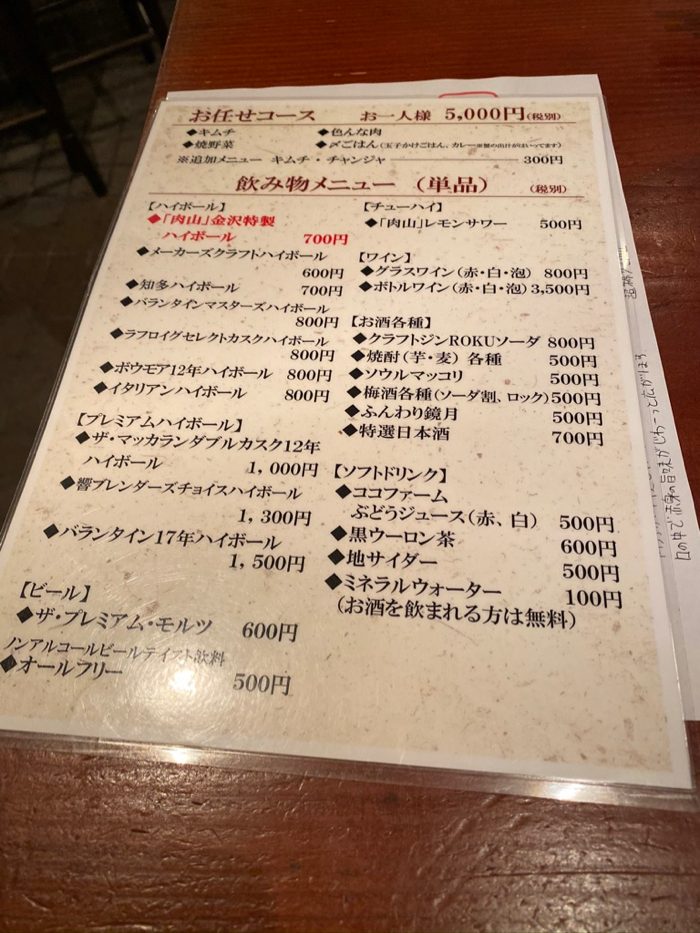 お任せコース お一人様 5,000円(税別)
◆キムチ ◆色んな肉
◆焼野菜 ◆〆ごはん(玉子かけごはん、カレー※蟹の出汁がはいってます)
※追加メニュー キムチ・チャンジャ 300円
飲み物メニュー (単品) (税別)
【ハイボール】
◆「肉山」金沢特製
ハイボール 700円
◆メーカーズクラフトハイボール
600円
◆知多ハイボール 700円
◆バランタインマスターズハイボール
800円
◆ラフロイグセレクトカスクハイボール
800円
◆ボウモア12年ハイボール 800円
◆イタリアンハイボール 800円
【プレミアムハイボール】
◆ザ・マッカランダブルカスク12年
ハイボール 1,000円
◆響ブレンダーズチョイスハイボール
1,300円
◆バランタイン17年ハイボール
1,500円
【ビール】
◆ザ・プレミアム・モルツ 600円
ノンアルコールビールテイスト飲料
◆オールフリー 500円
【チューハイ】
◆「肉山」レモンサワー 500円
【ワイン】
◆グラスワイン(赤・白・泡) 800円
◆ボトルワイン(赤・白・泡) 3,500円
【お酒各種】
◆クラフトジンROKUソーダ 800円
◆焼酎(芋・麦) 各種 500円
◆ソウルマッコリ 500円
◆梅酒各種(ソーダ割、ロック) 500円
◆ふんわり鏡月 500円
◆特選日本酒 700円
【ソフトドリンク】
◆ココファーム
ぶどうジュース(赤、白) 500円
◆黒ウーロン茶 600円
◆地サイダー 500円
◆ミネラルウォーター 100円
(お酒を飲まれる方は無料)
口の中で赤身の旨味がじわーっと広がるほろ